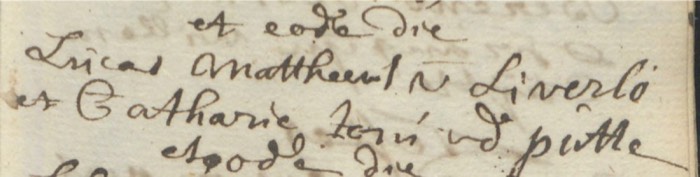 et eode die
Lucas Mattheeus v Liverlo
et Catharie ... vd putte
et eode die